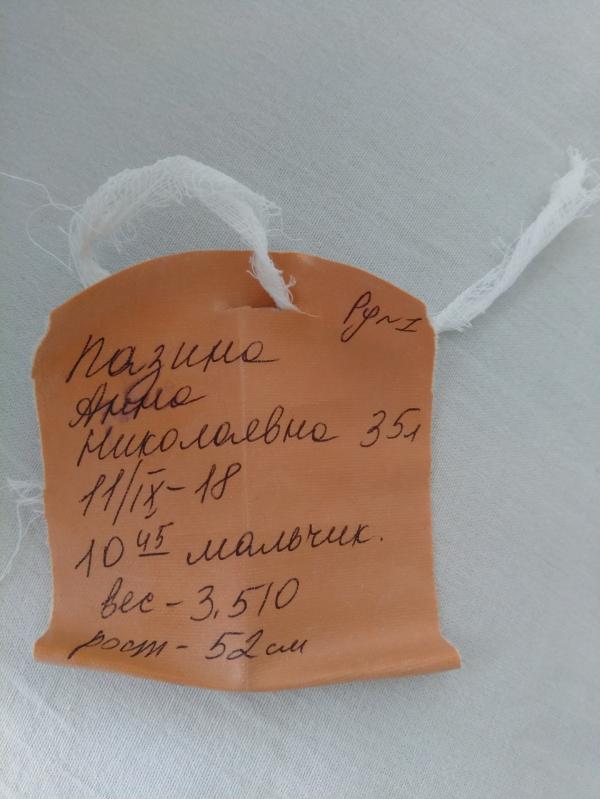 Рф~I
Пазина
Анна
Николаевна 35л
11/IX-18
10 45 мальчик.
вес - 3.510
рост - 52см